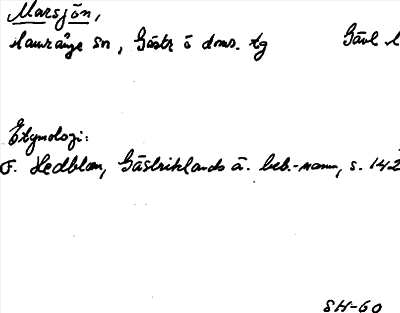 Marsjön,
Hamrånge sn, Gästr ö dms. tg Gävl
Etymologi:
F. Hedblom, Gästriklands ä. beb.-namn, s. 142
SH-60